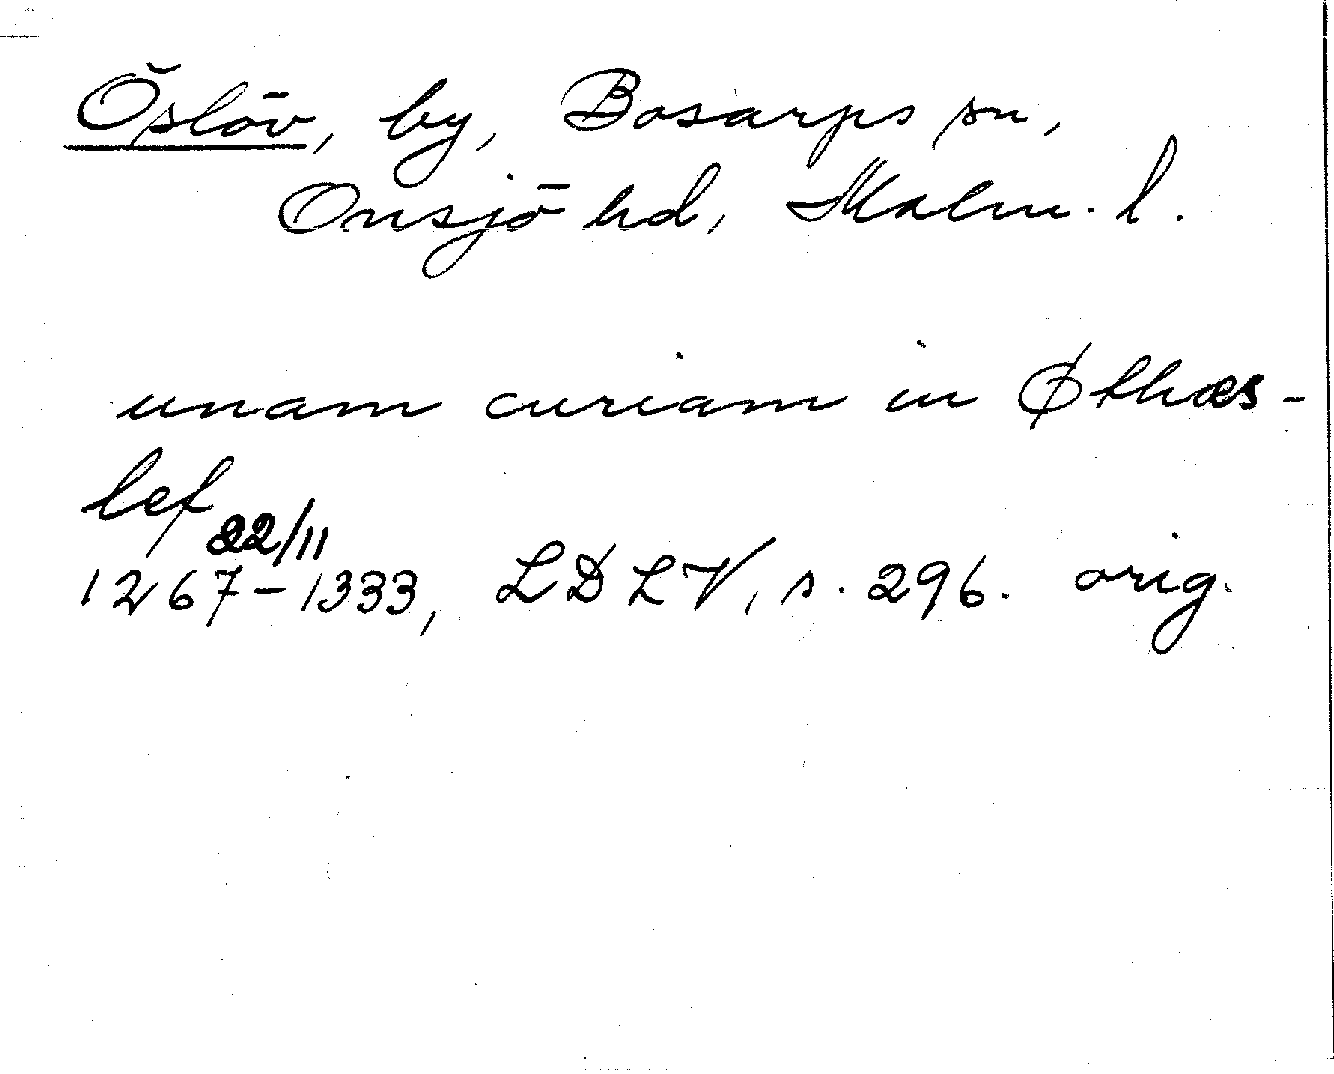 Öslöv, by, Bosarps sn,
Onsjö hd, Malm. l.
unam curiam in Øthæs-
lef
22/11
1267-1333, LDLV, s. 296. orig.